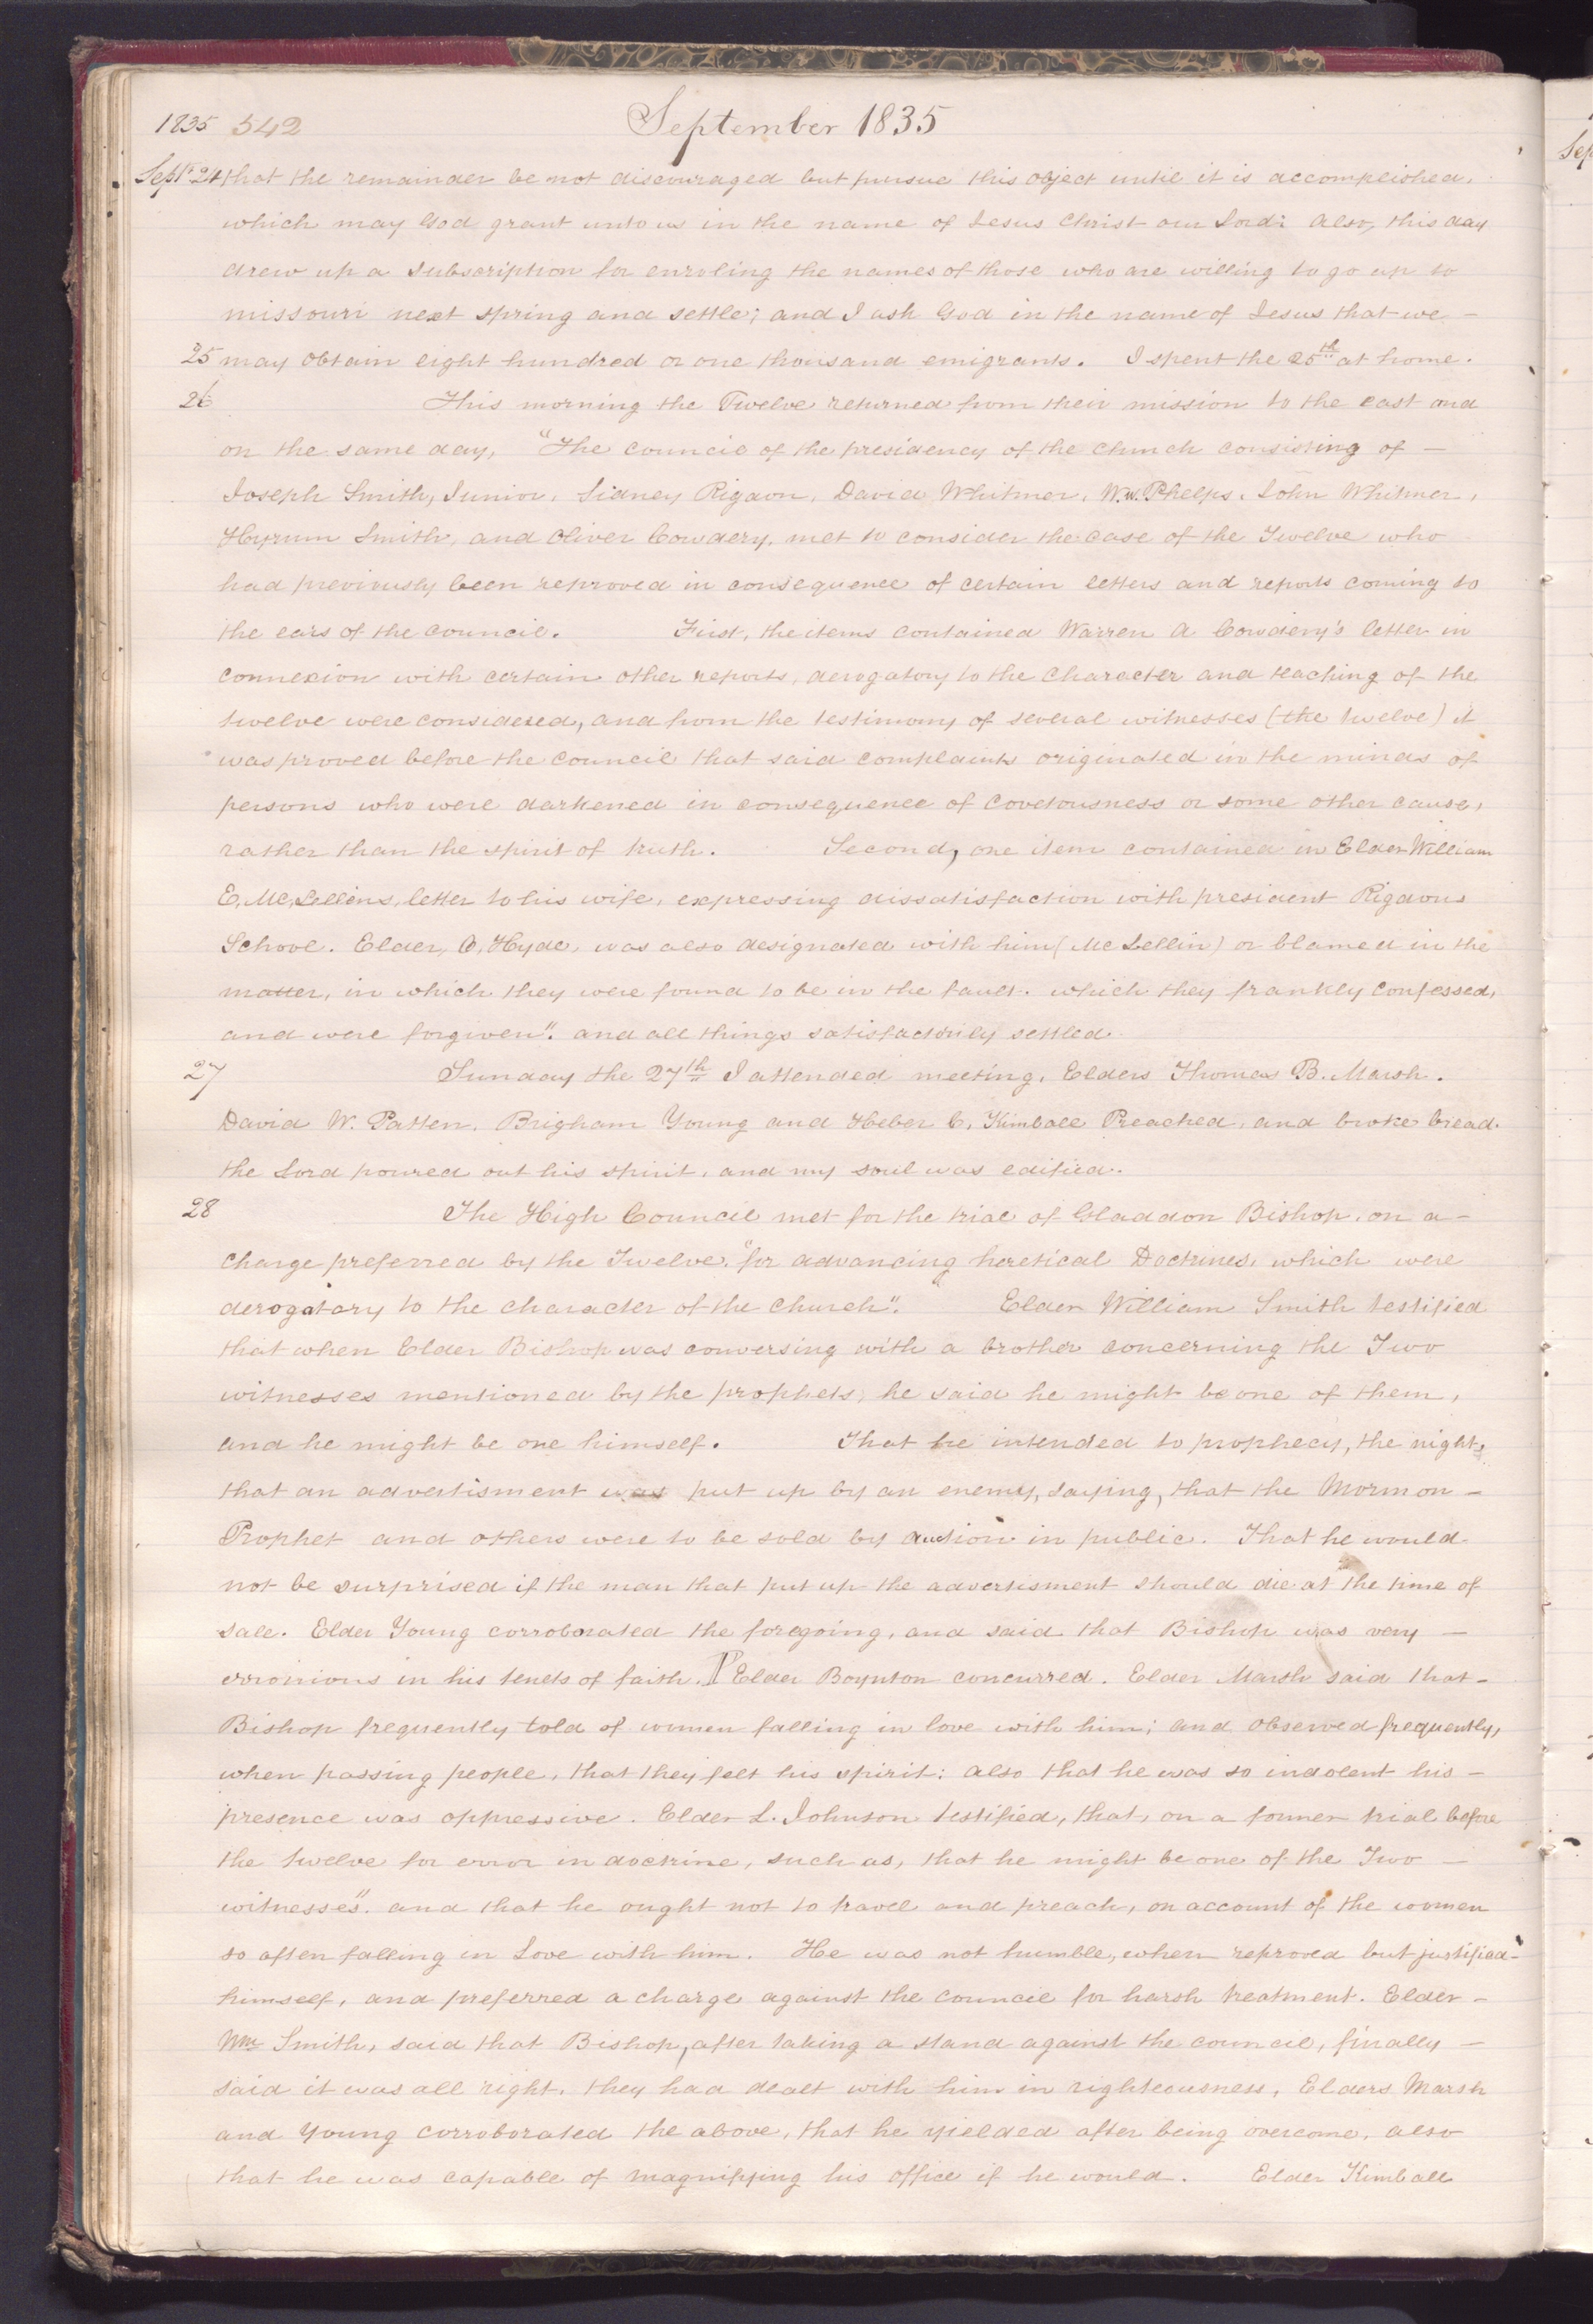 1835 542 September 1835
Sept. 24 that the remainder be not discouraged but pursue this object until it is accomplished,
which may God grant unto us in the name of Jesus Christ our Lord: Also, this day
drew up a subscription for enroling the names of those who are willing to go up to
missouri next spring and settle; and I ask God in the name of Jesus that we -
25 may obtain eight hundred or one thousand emigrants. I spent the 25th at home.
26 This morning the Twelve returned from their mission to the east and
on the same day, "The council of the presidency of the church consisting of -
Joseph Smith, Junior, Sidney Rigdon, David Whitmer, W. W. Phelps, John Whitmer,
Hyrum Smith, and Oliver Cowdery, met to consider the case of the Twelve who
had previously been reproved in consequence of certain letters and reports coming to
the ears of the council. First, the items contained Warren A Cowdery's letter in
connexion with certain other reports, derogatory to the character and teaching of the
twelve were considered, and from the testimony of several witnesses (the twelve) it
was proved before the council that said complaints originated in the minds of
persons who were darkened in consequence of covetousness or some other cause,
rather than the spirit of truth. Second, one item contained in Elder William
E, Mc,Lellins, letter to his wife, expressing dissatisfaction with president Rigdons
School. Elder, O, Hyde, was also designated with him (Mc Lellin) or blamed in the
matter, in which they were found to be in the fault. which they frankly confessed,
and were forgiven". and all things satisfactorily settled.
27 Sunday the 27th I attended meeting. Elders Thomas B. Marsh.
David W. Patten, Brigham Young and Heber C, Kimball Preached, and broke bread.
the Lord poured out his spirit, and my soul was edified.
28 The High Council met for the trial of Gladdon Bishop, on a -
charge preferred by the Twelve, "for advancing heretical Doctrines, which were
derogatory to the character of the church". Elder William Smith testified
that when Elder Bishop was conversing with a brother concerning the Two
witnesses mentioned by the prophets, he said he might be one of them,
and he might be one himself. That he intended to prophecy, the night,
that an advertisment was put up by an enemy, saying, that the Mormon -
Prophet and others were to be sold by auction in public. That he would
not be surprised if the man that put up the advertisment should die at the time of
sale. Elder Young corroborated the foregoing, and said that Bishop was very -
erronious in his tenets of faith. ¶ Elder Boynton concurred. Elder Marsh said that -
Bishop frequently told of women falling in love with him; and observed frequently,
when passing people, that they felt his spirit: also that he was so indolent his -
presence was oppressive. Elder L. Johnson testified, that, on a former trial before
the twelve for error in doctrine, such as, that he might be one of the Two -
witnesses". and that he ought not to travel and preach, on account of the women
so often falling in Love with him. He was not humble, when reproved but justified -
himself, and preferred a charge against the council for harsh treatment. Elder -
Wm Smith, said that Bishop, after taking a stand against the council, finally -
said it was all right, they had dealt with him in righteousness, Elders Marsh
and Young corroborated the above, that he yielded after being overcome, also
that he was capable of magnifying his office if he would. Elder Kimball